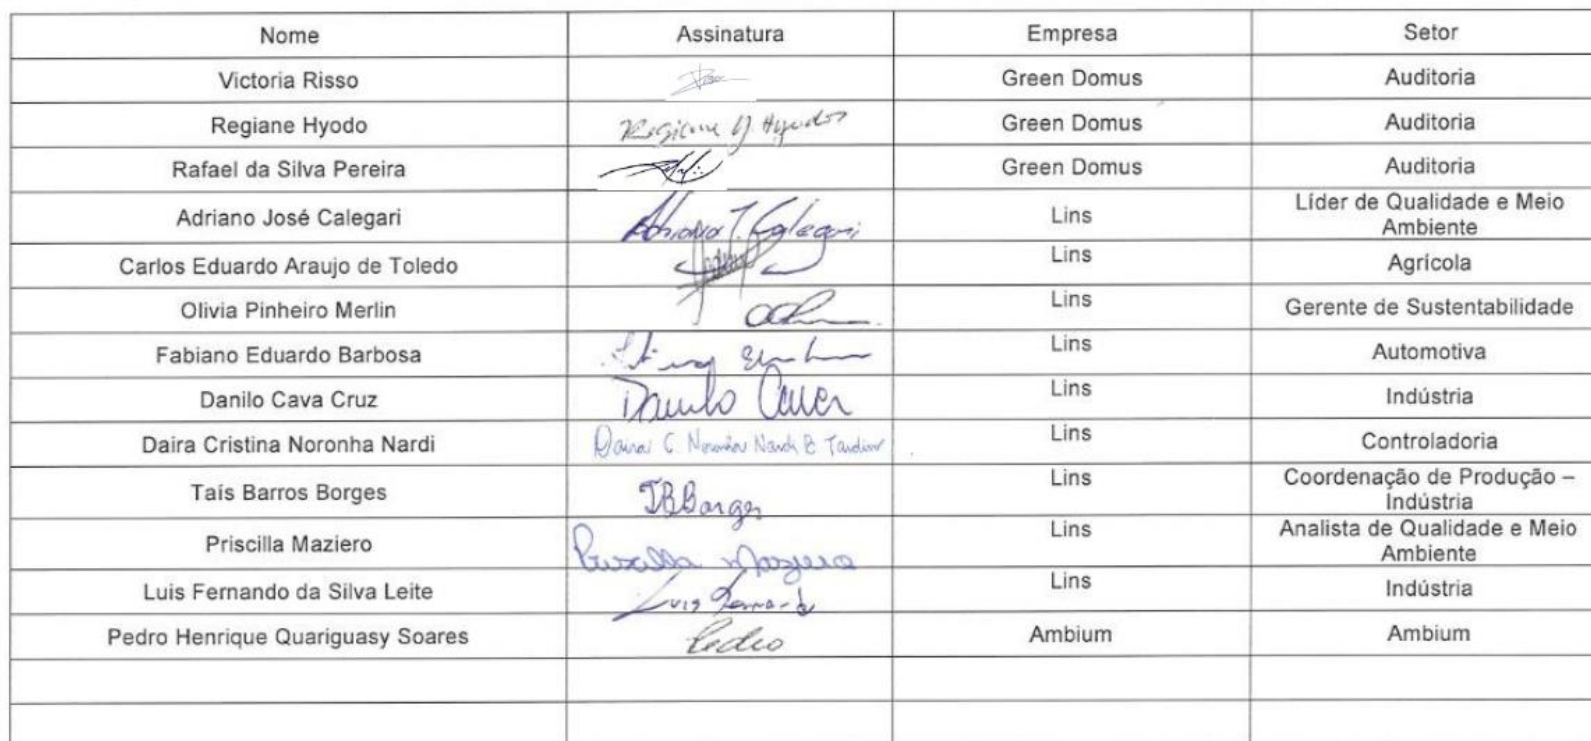 Nome Assinatura Empresa Setor
Victoria Risso Green Domus Auditoria
Regiane Hyodo Regiane Y. Hyodo Green Domus Auditoria
Rafael da Silva Pereira Green Domus Auditoria
Adriano José Calegari Adriano J. Calegari Lins Líder de Qualidade e Meio
Ambiente
Carlos Eduardo Araujo de Toledo Lins Agrícola
Olivia Pinheiro Merlin Lins Gerente de Sustentabilidade
Fabiano Eduardo Barbosa Lins Automotiva
Danilo Cava Cruz Danilo Lins Indústria
Daira Cristina Noronha Nardi Daira C. Noronha Nardi B Lins Controladoria
Taís Barros Borges TBBorges Lins Coordenação de Produção –
Indústria
Priscilla Maziero Priscilla Maziero Lins Analista de Qualidade e Meio
Ambiente
Luis Fernando da Silva Leite Luis Fernando Lins Indústria
Pedro Henrique Quariguasy Soares Pedro Ambium Ambium